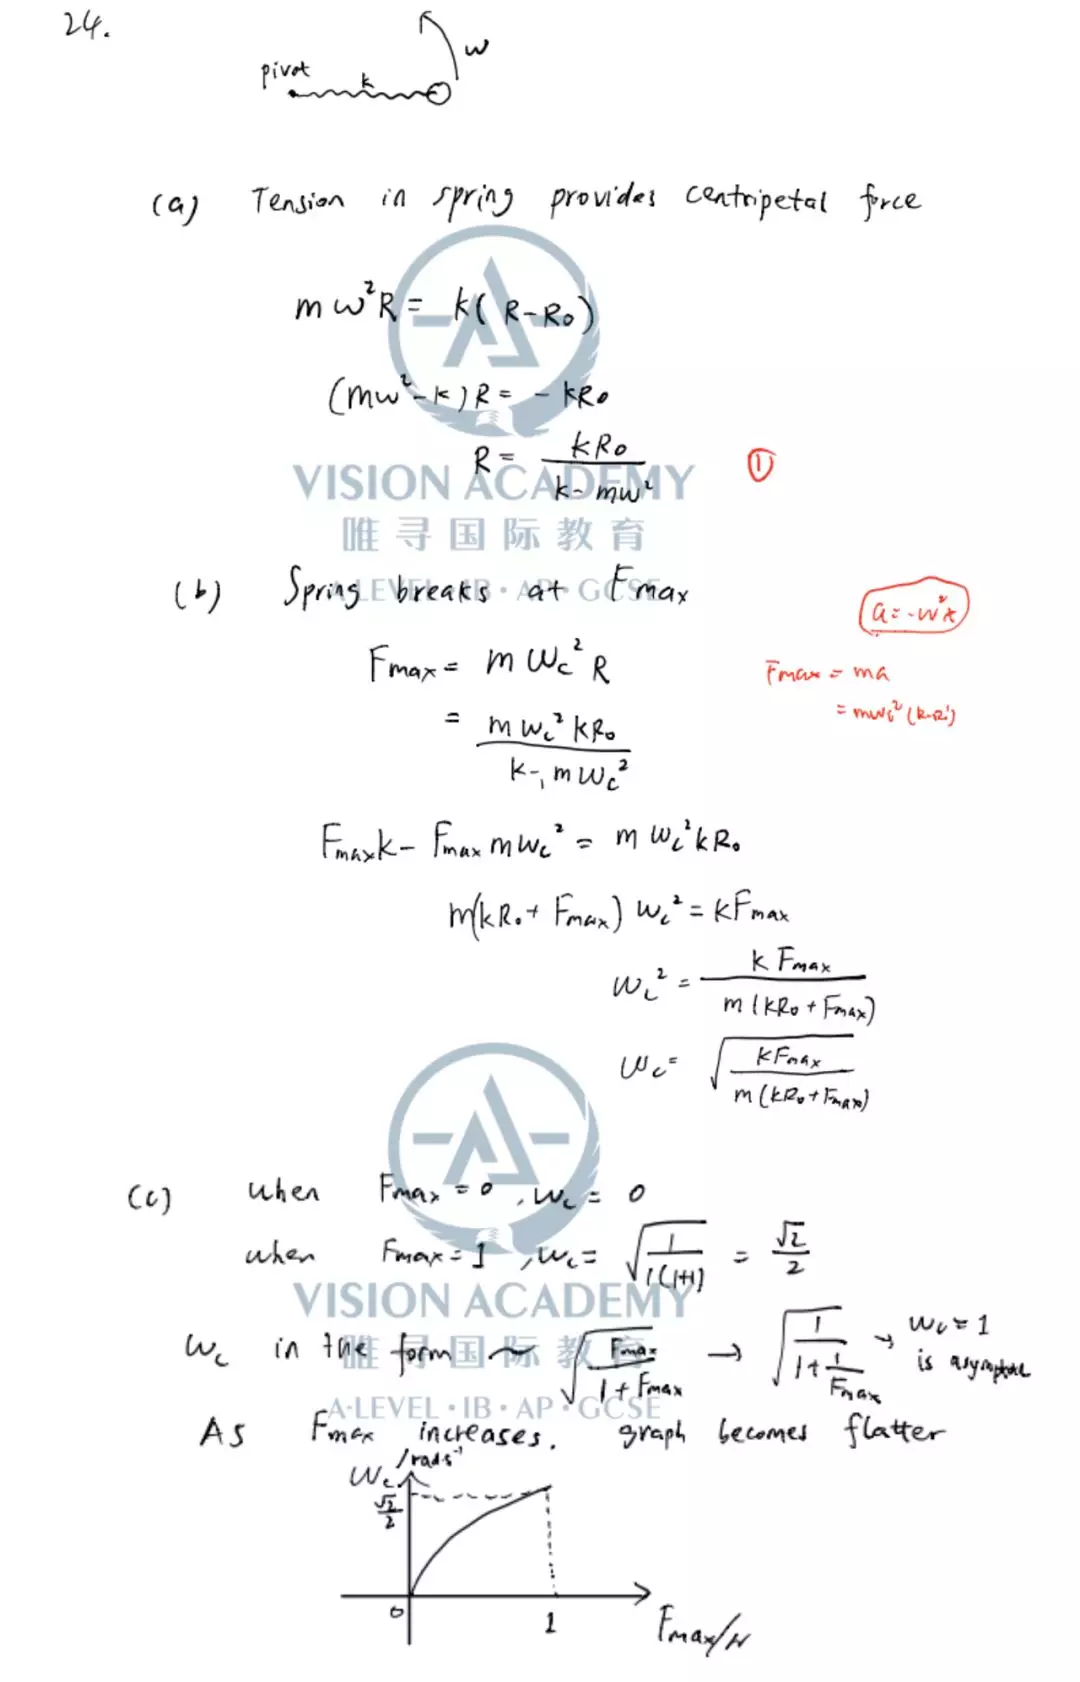 24.
pivot k ω
(a) Tension in spring provides centripetal force
mω²R = k(R-R₀)
(mω²-k)R = -kR₀
R = kR₀ / (k-mω²) ①
VISION ACADEMY
唯寻国际教育
A-LEVEL · IB · AP · GCSE
(b) Spring breaks at Fmax
a = -ω²x
Fmax = mωc²R
Fmax = ma
= mωc²kR₀ / (k-mωc²)
Fmaxk - Fmax mωc² = mωc²kR₀
m(kR₀ + Fmax)ωc² = kFmax
ωc² = kFmax / m(kR₀ + Fmax)
ωc = √(kFmax / m(kR₀ + Fmax))
(c) when Fmax = 0, ωc = 0
when Fmax = 1, ωc = √(1 / 1(1+1)) = √2/2
VISION ACADEMY
唯寻国际教育
ωc in the form ~ √(Fmax / 1+Fmax) → √(1 / 1+1/Fmax) → ωc = 1 is asymptote
A-LEVEL · IB · AP · GCSE
As Fmax increases. graph becomes flatter
ωc /rads⁻¹
√2/2
0 1 Fmax/N